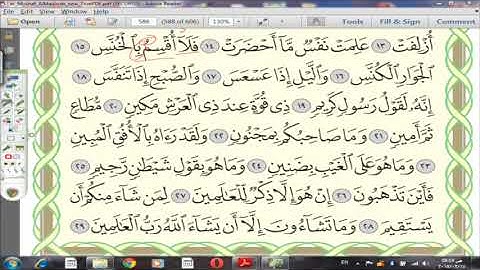 586 (588 of 606) 130% Tools Fill & Sign Comment
أُزْلِفَتْ ١٣ عَلِمَتْ نَفْسٌ مَّا أَحْضَرَتْ ١٤ فَلَا أُقْسِمُ بِالْخُنَّسِ ١٥
الْجَوَارِ الْكُنَّسِ ١٦ وَالَّيْلِ إِذَا عَسْعَسَ ١٧ وَالصُّبْحِ إِذَا تَنَفَّسَ ١٨
إِنَّهُ لَقَوْلُ رَسُولٍ كَرِيمٍ ١٩ ذِي قُوَّةٍ عِندَ ذِي الْعَرْشِ مَكِينٍ ٢٠ مُّطَاعٍ
ثَمَّ أَمِينٍ ٢١ وَمَا صَاحِبُكُم بِمَجْنُونٍ ٢٢ وَلَقَدْ رَءَاهُ بِالْأُفُقِ الْمُبِينِ
٢٣ وَمَا هُوَ عَلَى الْغَيْبِ بِضَنِينٍ ٢٤ وَمَا هُوَ بِقَوْلِ شَيْطَانٍ رَّجِيمٍ ٢٥
فَأَيْنَ تَذْهَبُونَ ٢٦ إِنْ هُوَ إِلَّا ذِكْرٌ لِّلْعَالَمِينَ ٢٧ لِمَن شَاءَ مِنكُمْ أَن
يَسْتَقِيمَ ٢٨ وَمَا تَشَاءُونَ إِلَّا أَن يَشَاءَ اللَّهُ رَبُّ الْعَالَمِينَ ٢٩
FR